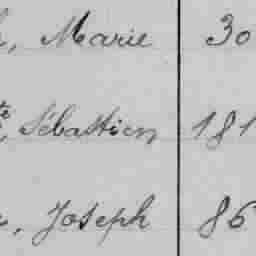 , Marie 30
te, Sébastien 181
, Joseph 86